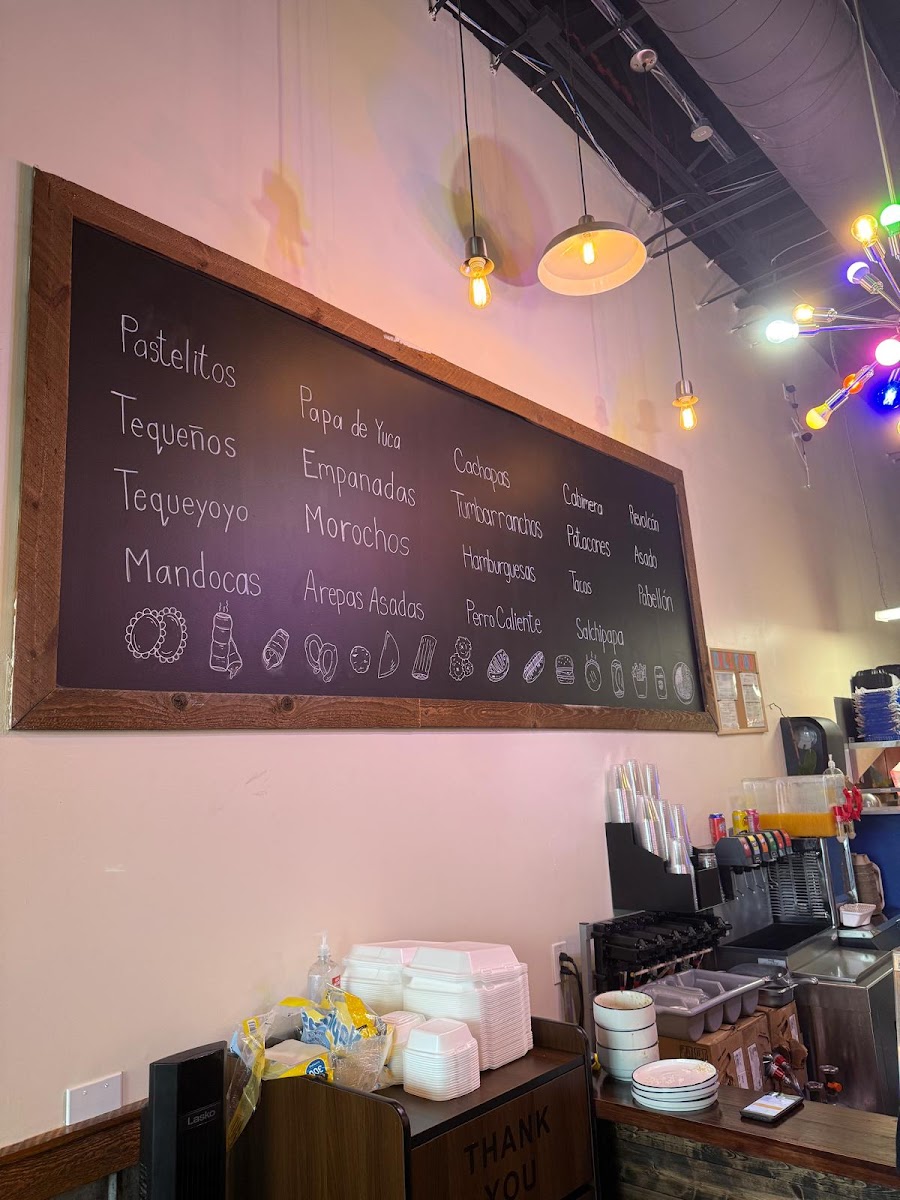 Pastelitos
Tequeños
Tequeyoyo
Mandocas
Papa de Yuca
Empanadas
Morochos
Arepas Asadas
Cachapas
Tumbarranchos
Hamburguesas
Perro Caliente
Cabimera
Patacones
Tacos
Salchipapa
Revolcón
Asado
Pabellón
Lasko
THANK
YOU